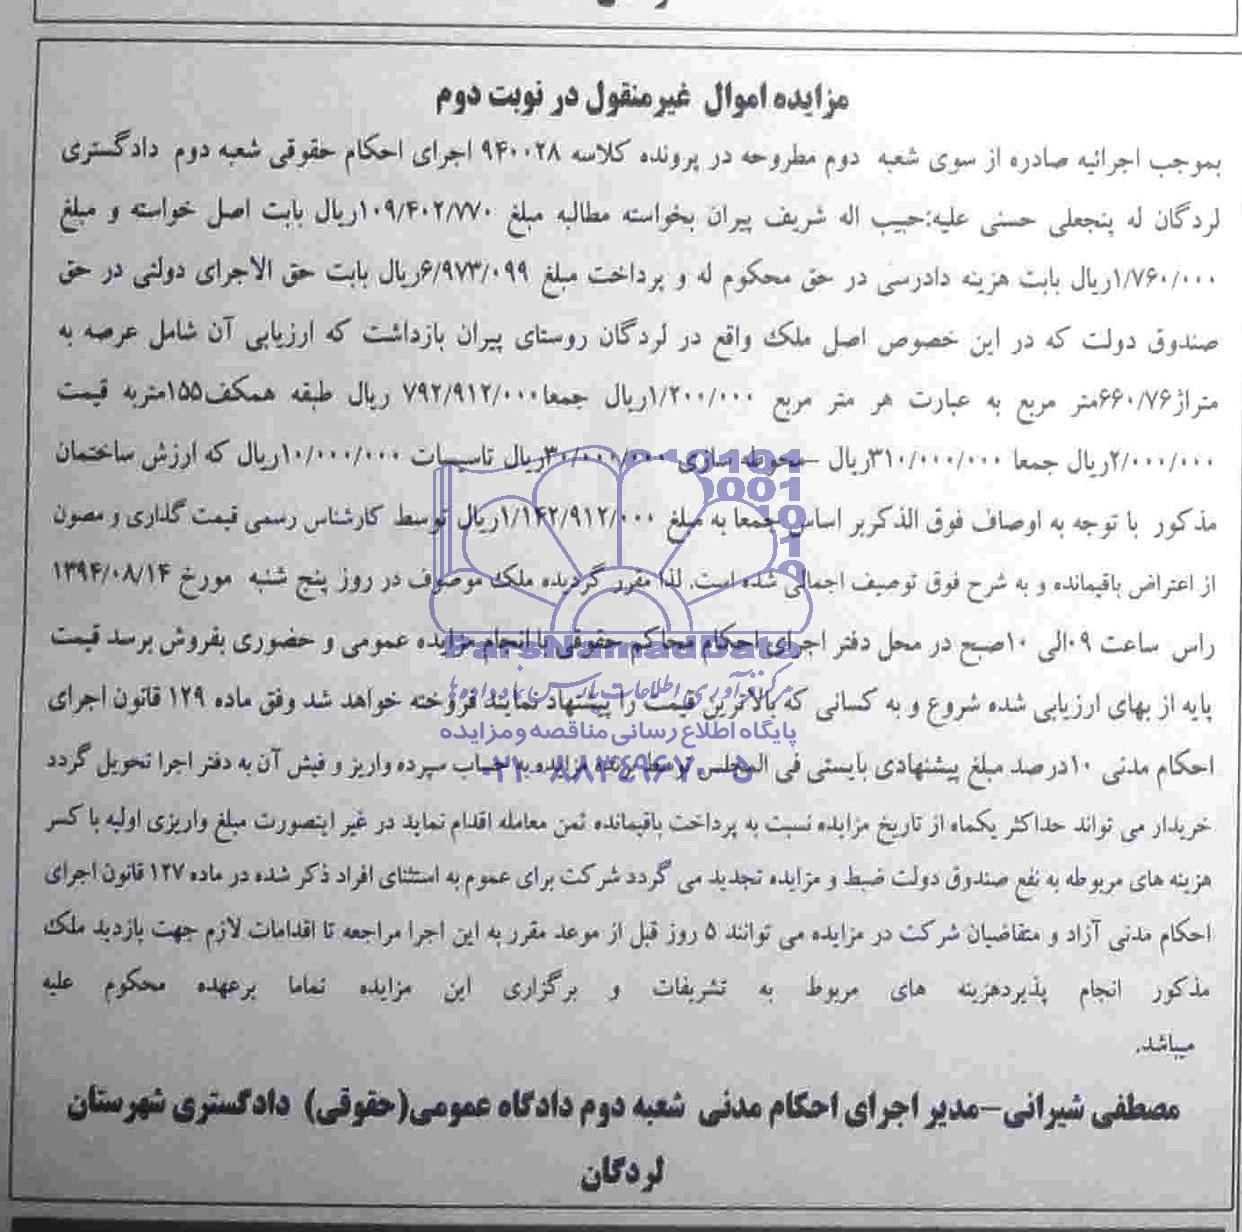 مزایده اموال غیرمنقول در نوبت دوم
بموجب اجرائیه صادره از سوی شعبه دوم مطروحه در پرونده کلاسه ۹۴۰۰۲۸ اجرای احکام حقوقی شعبه دوم دادگستری
لردگان له پنجعلی حسنی علیه:حبیب اله شریف پیران بخواسته مطالبه مبلغ ۱۰۹/۴۰۲/۷۷۰ریال بابت اصل خواسته و مبلغ
۱/۷۶۰/۰۰۰ریال بابت هزینه دادرسی در حق محکوم له و پرداخت مبلغ ۶/۹۷۳/۰۹۹ریال بابت حق الاجرای دولتی در حق
صندوق دولت که در این خصوص اصل ملک واقع در لردگان روستای پیران بازداشت که ارزیابی آن شامل عرصه به
متراژ۶۶۰/۷۶متر مربع به عبارت هر متر مربع ۱/۲۰۰/۰۰۰ریال جمعا۷۹۲/۹۱۲/۰۰۰ ریال طبقه همکف۱۵۵متربه قیمت
۲/۰۰۰/۰۰۰ریال جمعا ۳۱۰/۰۰۰/۰۰۰ریال –محوطه سازی ۳۰/۰۰۰/۰۰۰ریال تاسیسات ۱۰/۰۰۰/۰۰۰ریال که ارزش ساختمان
مذکور با توجه به اوصاف فوق الذکربر اساس جمعا به مبلغ ۱/۱۴۲/۹۱۲/۰۰۰ریال توسط کارشناس رسمی قیمت گذاری و مصون
از اعتراض باقیمانده و به شرح فوق توصیف اجمالی شده است. لذا مقرر گردیده ملک موصوف در روز پنج شنبه مورخ ۱۳۹۴/۰۸/۱۴
راس ساعت ۰۹الی ۱۰صبح در محل دفتر اجرای احکام محاکم حقوقی با انجام مزایده عمومی و حضوری بفروش برسد قیمت
پایه از بهای ارزیابی شده شروع و به کسانی که بالاترین قیمت را پیشنهاد نمایند فروخته خواهد شد وفق ماده ۱۲۹ قانون اجرای
احکام مدنی ۱۰درصد مبلغ پیشنهادی بایستی فی المجلس توسط برنده مزایده به حساب سپرده واریز و فیش آن به دفتر اجرا تحویل گردد
خریدار می تواند حداکثر یکماه از تاریخ مزایده نسبت به پرداخت باقیمانده ثمن معامله اقدام نماید در غیر اینصورت مبلغ واریزی اولیه با کسر
هزینه های مربوطه به نفع صندوق دولت ضبط و مزایده تجدید می گردد شرکت برای عموم به استثنای افراد ذکر شده در ماده ۱۲۷ قانون اجرای
احکام مدنی آزاد و متقاضیان شرکت در مزایده می توانند ۵ روز قبل از موعد مقرر به این اجرا مراجعه تا اقدامات لازم جهت بازدید ملک
مذکور انجام پذیردهزینه های مربوط به تشریفات و برگزاری این مزایده تماما برعهده محکوم علیه
میباشد.
مصطفی شیرانی–مدیر اجرای احکام مدنی شعبه دوم دادگاه عمومی(حقوقی) دادگستری شهرستان
لردگان
ParsNamadData
پایگاه اطلاع رسانی مناقصه و مزایده
۰۲۱-۸۸۳۴۹۶۷۰-۵